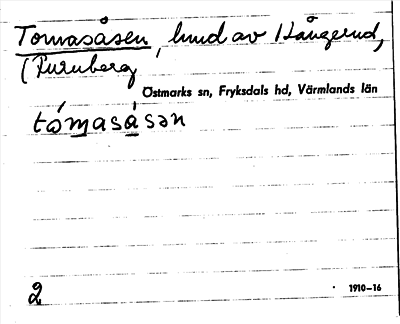 Tomasåsen, hmd av Hångerud,
(Furuberg
Östmarks sn, Fryksdals hd, Värmlands län
tómasásən
2
1910–16